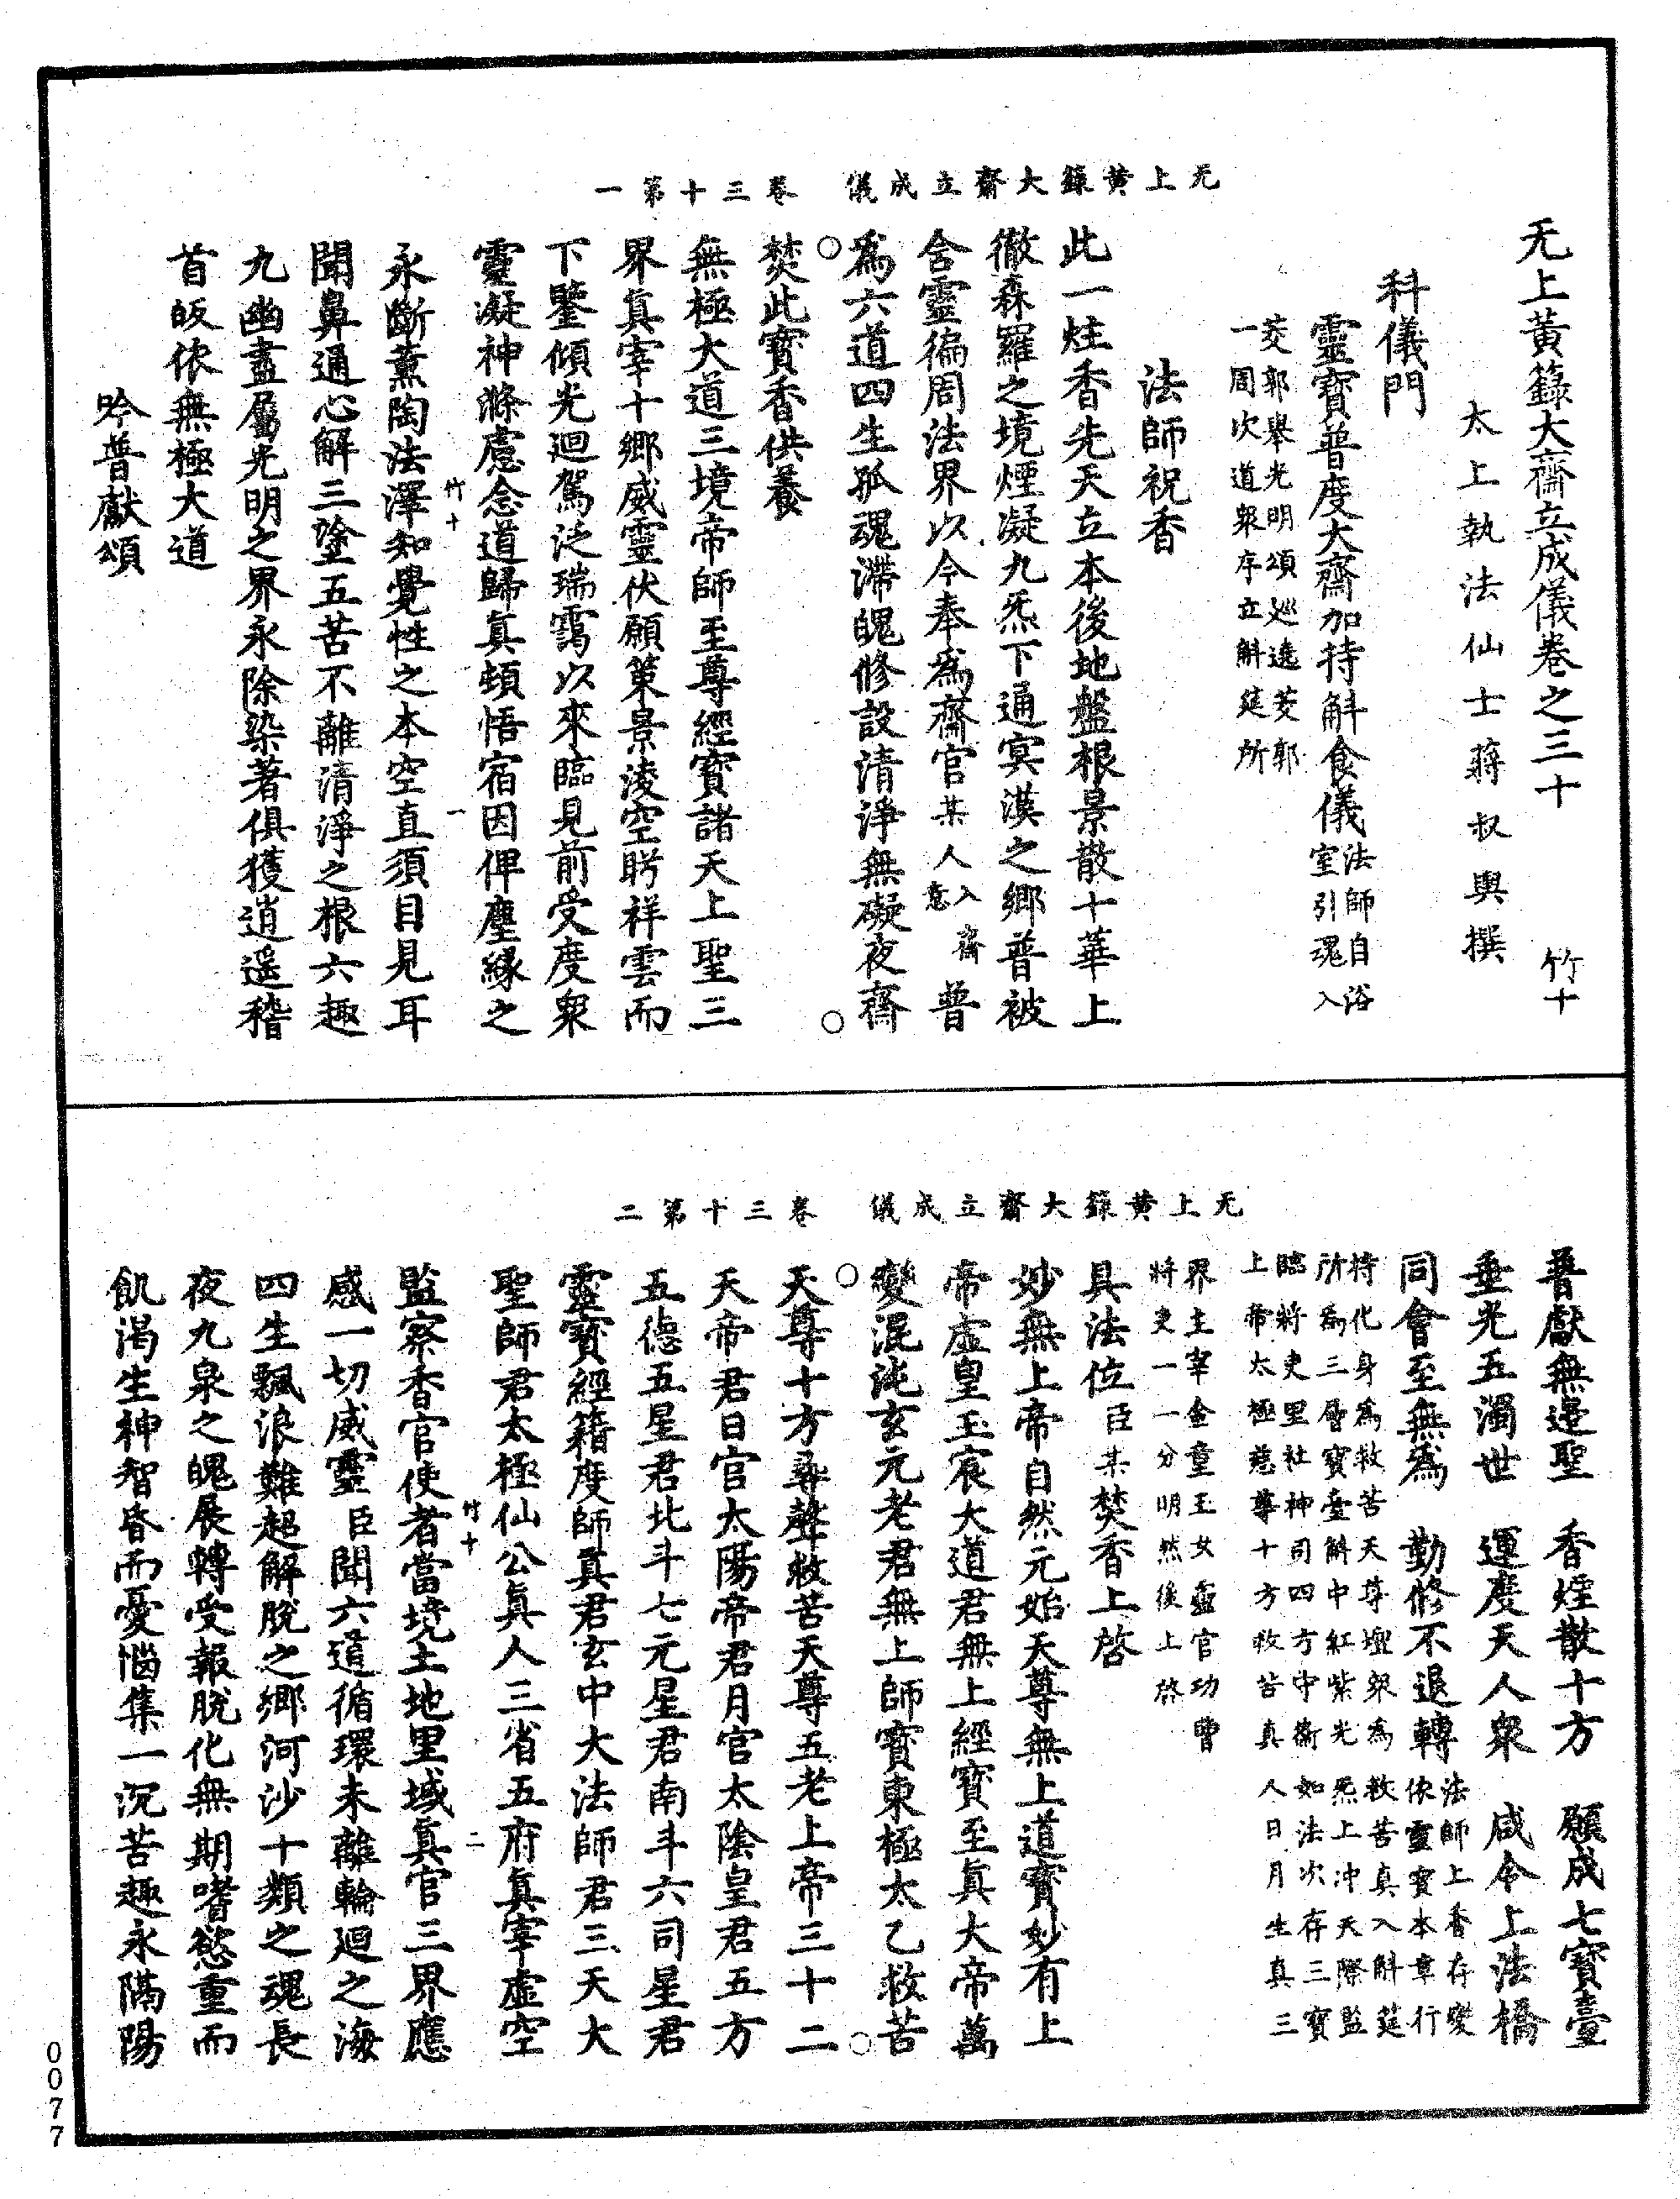 无上黃籙大齋立成儀　卷三十第一
无上黃籙大齋立成儀卷之三十　竹十
太上執法仙士蔣叔輿撰
科儀門
靈寶普度大齋加持斛食儀法師自浴室引魂入
茭郭舉光明頌廵遶茭郭一周次道衆序立斛筵所
法師祝香
此一炷香先天立本後地盤根景散十華上
徹森羅之境煙凝九炁下通冥漠之鄉普被
含靈徧周法界以今奉爲齋官某人入齋意普
爲六道四生孤魂滯魄修設清淨無礙夜齋
焚此寶香供養
無極大道三境帝師至尊經寶諸天上聖三
界真宰十鄉威靈伏願策景淩空盻祥雲而
下鑒傾光迴駕泛瑞靄以來臨見前受度衆
靈凝神滌慮念道歸真頓悟宿因俾塵緣之
竹十　一
永斷薰陶法澤知覺性之本空直須目見耳
聞鼻通心解三塗五苦不離清淨之根六趣
九幽盡屬光明之界永除染著俱獲逍遥稽
首皈依無極大道
吟普獻頌
无上黃籙大齋立成儀　卷三十第二
普獻無邊聖　香煙散十方　願成七寶臺
垂光五濁世　運度天人衆　咸令上法橋
同會至無爲　勤修不退轉法師上香存變依靈寶本章行
持化身爲救苦天尊壇衆爲救苦真入斛筵所爲三層寶臺斛中紅紫光炁上沖天際監
臨將吏里社神司四方守衞如法次存三寶上帝太極慈尊十方救苦真人日月生真三
界主宰金童玉女靈官功曹將吏一一分明然後上啓
具法位臣某焚香上啓
妙無上帝自然元始天尊無上道寶妙有上
帝虛皇玉宸大道君無上經寶至真大帝萬
變混沌玄元老君無上師寶東極太乙救苦
天尊十方尋聲救苦天尊五老上帝三十二
天帝君日宫太陽帝君月宫太陰皇君五方
五德五星君北斗七元星君南斗六司星君
靈寶經籍度師真君玄中大法師君三天大
聖師君太極仙公真人三省五府真宰虛空
竹十　二
監察香官使者當境土地里域真官三界應
感一切威靈臣聞六道循環未離輪迴之海
四生飄浪難超解脫之鄉河沙十類之魂長
夜九泉之魄展轉受報脫化無期嗜慾重而
飢渴生神智昏而憂惱集一沉苦趣永隔陽
0077